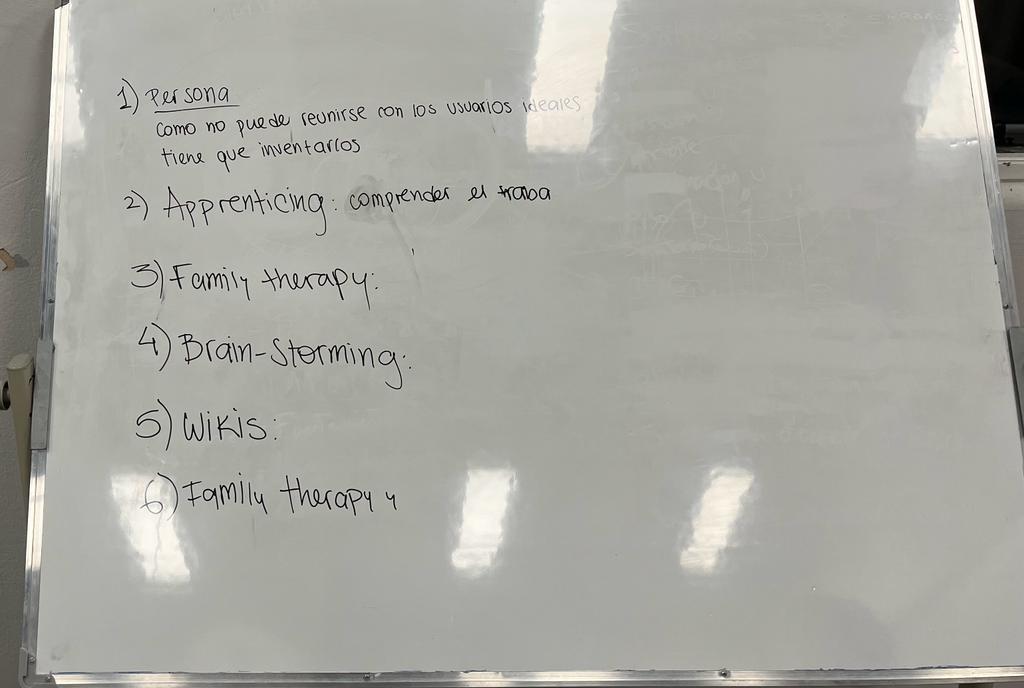 1) Persona
como no puede reunirse con los usuarios ideales
tiene que inventarlos
2) Apprenticing: comprender el traba
3) Family therapy:
4) Brain-Storming:
5) Wikis:
6) Family therapy y